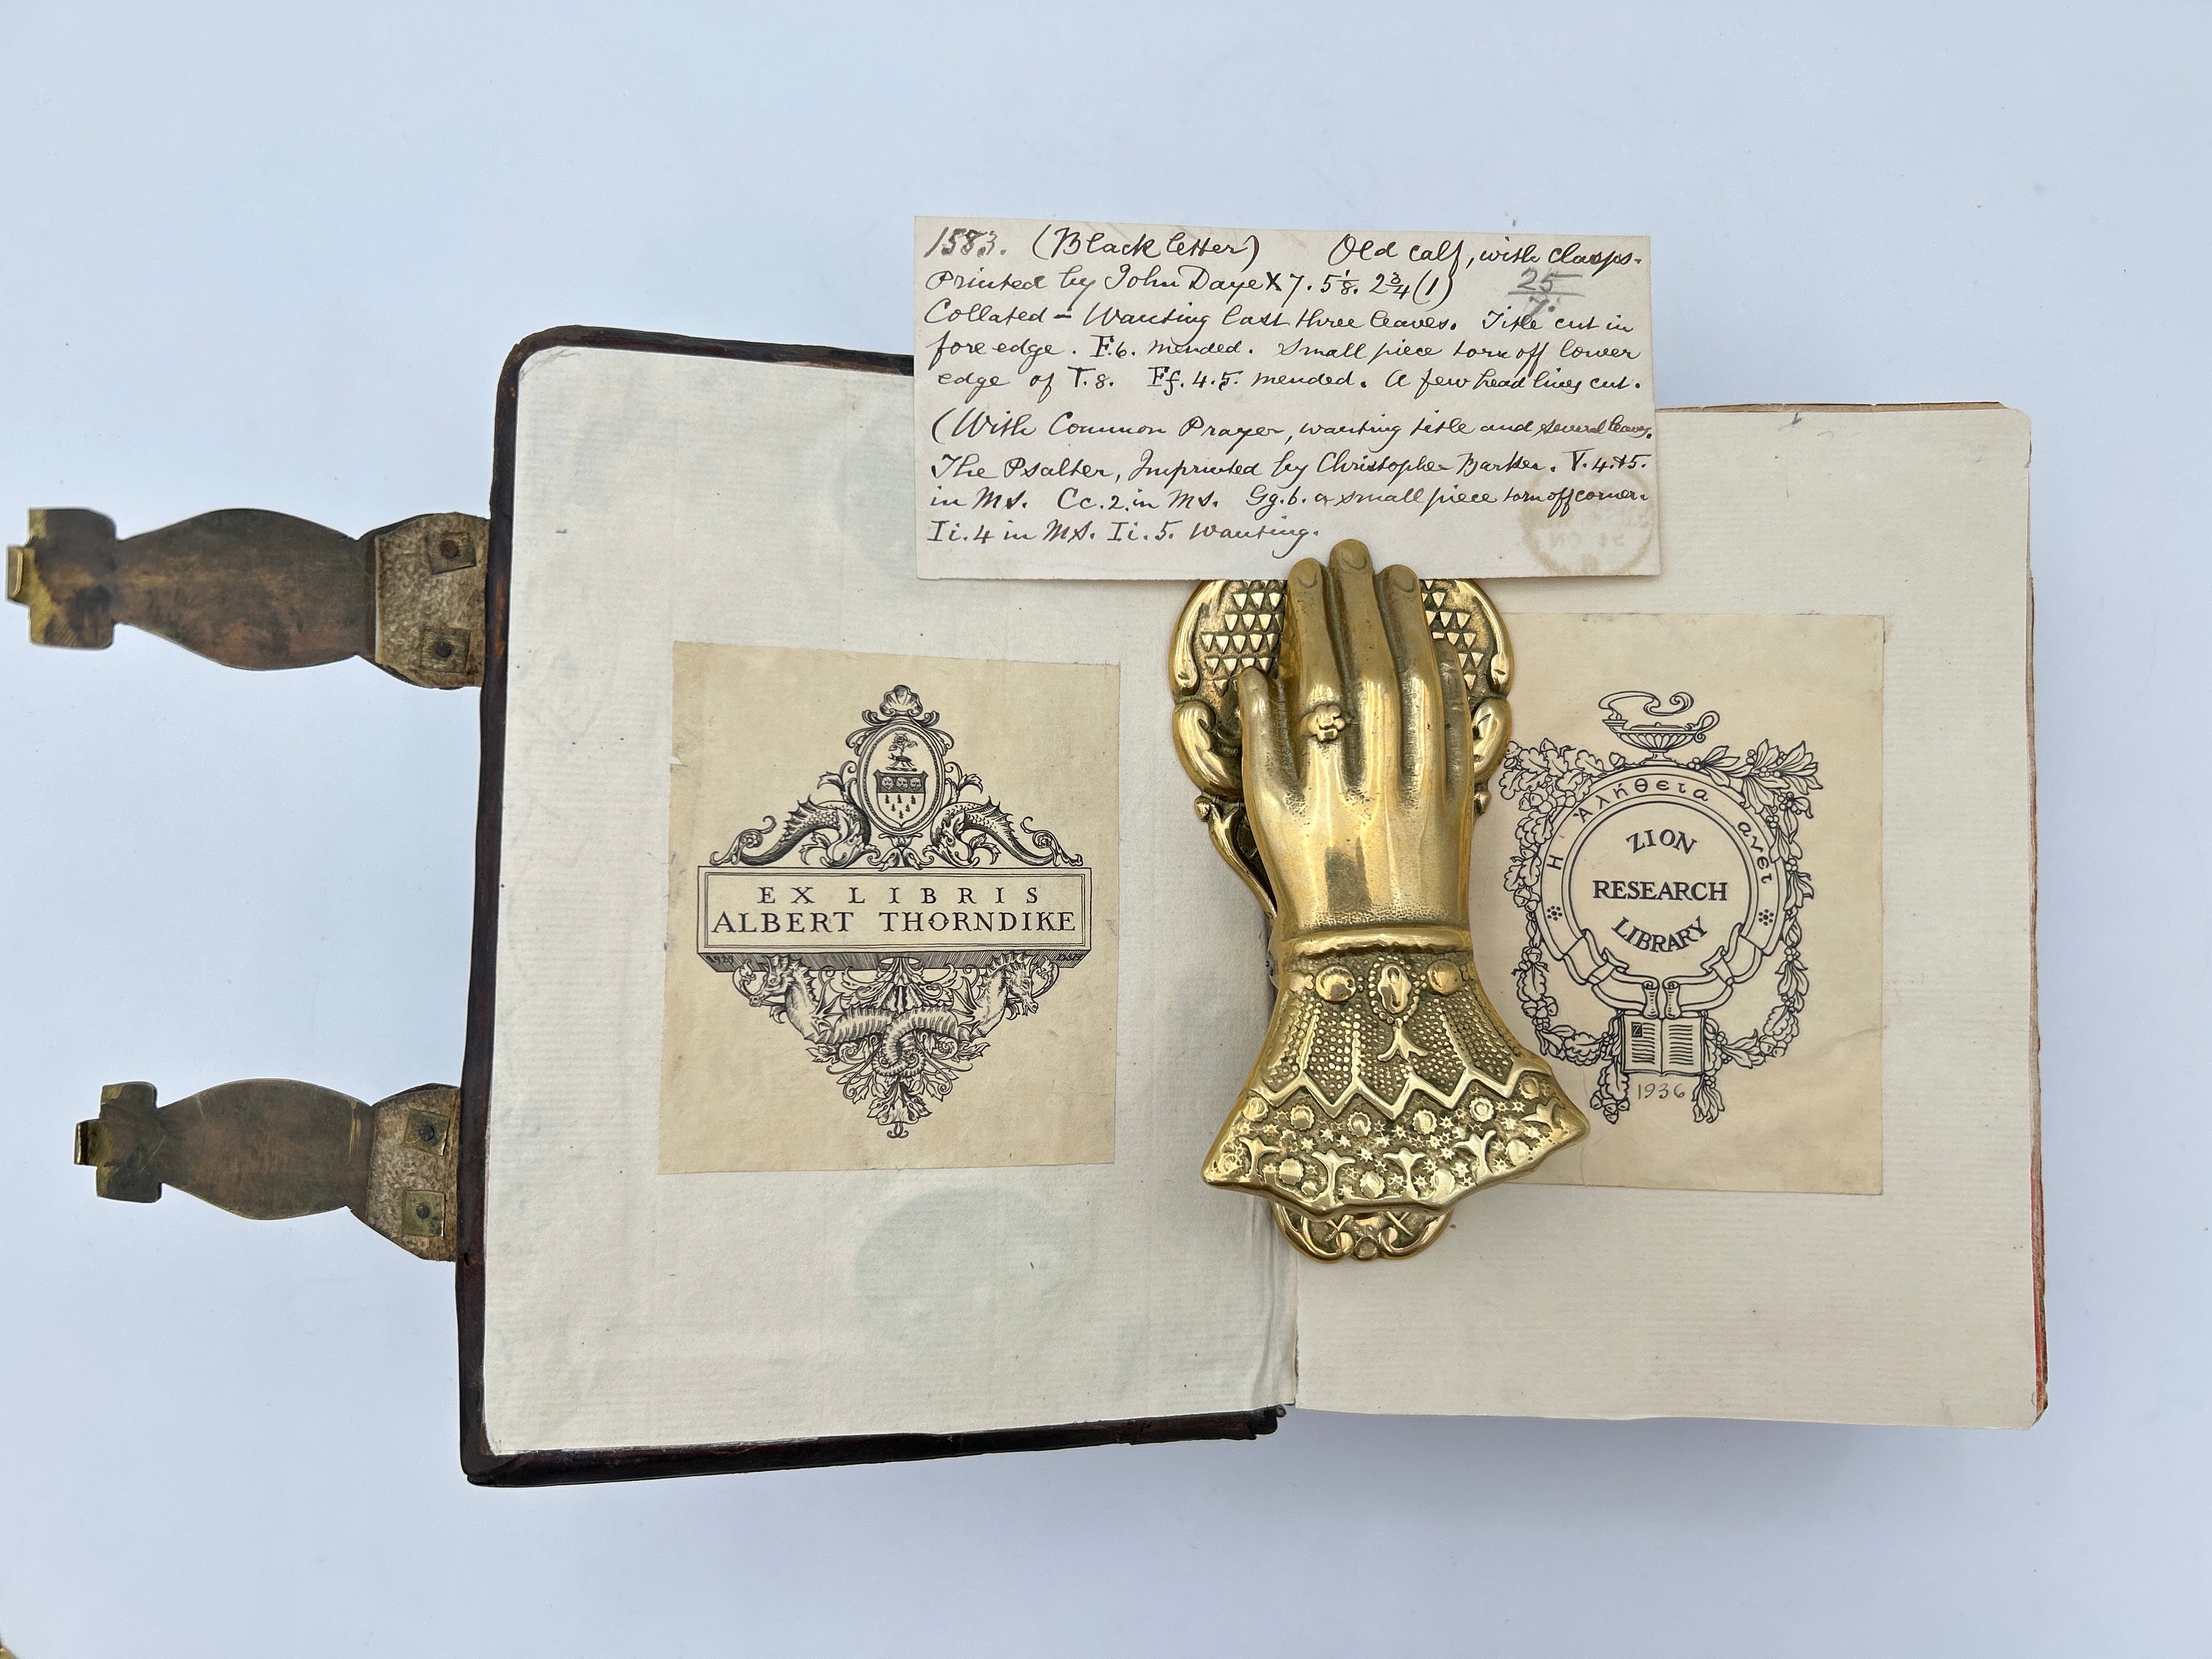 1583. (Black letter) Old calf, with clasps.
Printed by John Daye X 7. 5 1/8. 2 3/4 (1) 25/7.
Collated – Wanting last three leaves. Title cut in
fore edge. F.6. mended. Small piece torn off lower
edge of T.8. Ff. 4.5. mended. A few head lines cut.
(With Common Prayer, wanting title and several leaves.
The Psalter, Imprinted by Christopher Barker. V. 4.&5.
in MS. Cc.2. in MS. Gg.6. a small piece torn off corner.
Ii.4 in MS. Ii.5. Wanting.
EX LIBRIS
ALBERT THORNDIKE
Η Αλήθεια ανει
ZION
RESEARCH
LIBRARY
1936